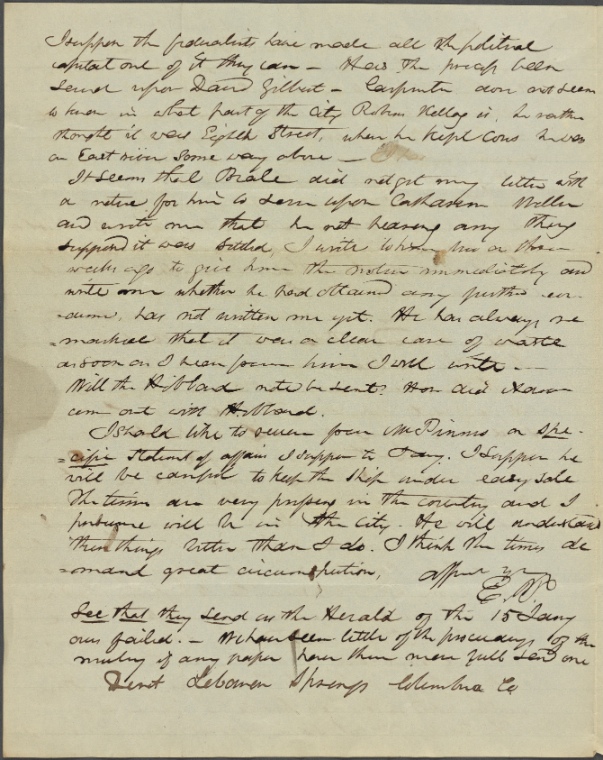 I suppose the federalists have made all the political
capital out of it they can – Has the precep been
served upon David Gilbert – Carpenter does not seem
to know in what part of the City Robin Kellog is, he rather
thought it was Eighth Street, when he kept Cows he was
on East river Some way above –
It seems that Beale did not get my letter with
a notice for him to serve upon Catharine Weller
and wrote me that he not hearing any thing
supposed it was settled, I wrote to him two or three
weeks ago to give him the notice immediately and
write me whether he had obtained any further evi-
-dence, has not written me yet. He has always re
-marked that it was a clear case of waste
as soon as I hear from him I will write –
Will the Hibbard note be sent? How did
come out with Hibbard.
I should like to receive from McKinnis a spe-
-cific statement of affairs I suppose to Jany. I suppose he
will be careful to keep the Ship under easy sale
The times are very pressing in the country and I
presume will be in the City. He will understand
these things better than I do. I think the times de
-mand great circumspection, affect yr
E.
See that they send us the Herald of the 15 Jany
ours failed. – We have seen little of the proceedings of the
meeting if any paper have them more full send one
Direct Lebanon Springs Columbia Co